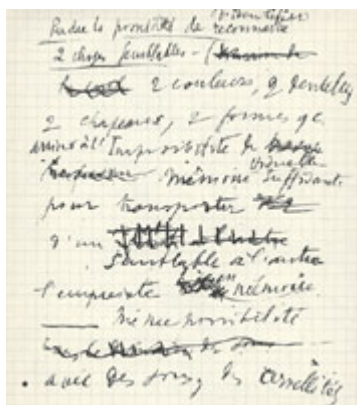 d'identifier
Perdre la possibilité de reconnaître
2 choses semblables –
2 couleurs, 2 dentelles
2 chapeaux, 2 formes qc.
arriver à l'Impossibilité de
mémoire visuelle suffisante
pour transporter
d'un
semblable à l'autre
l'empreinte mémoire.
Même possibilité
avec des sons; des cervellités